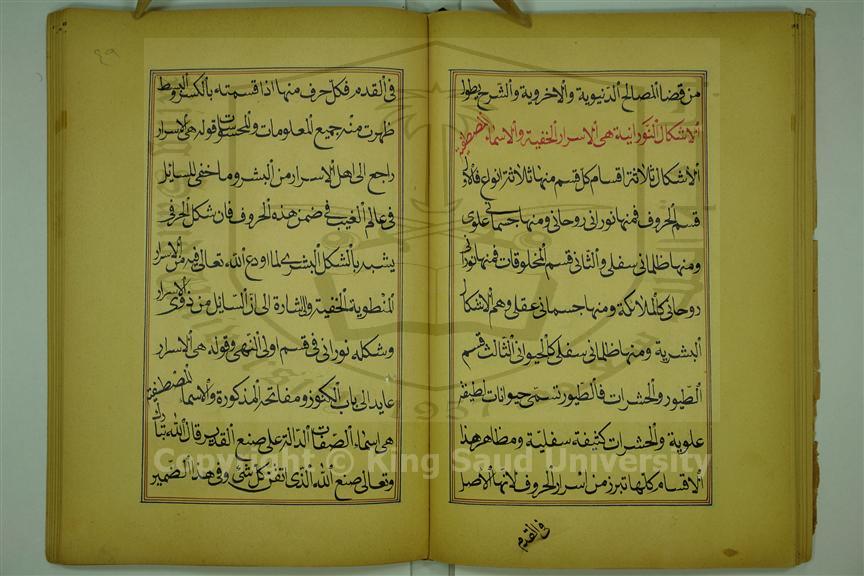 من قضا المصالح الدنيوية والاخروية والشرح يطول
الاشكال النورانية هي الاسرار الخفية والاسماء المصطفية
الاشكال ثلاثة اقسام كل قسم منها ثلاثة انواع فالاول
قسم الحروف فمنها نوراني روحاني ومنها جسماني علوي
ومنها ظلماني سفلي والثاني قسم المخلوقات فمنها نوراني
روحاني كالملائكة ومنها جسماني عقلي وهم الاشكال
البشرية ومنها ظلماني سفلي كالحيواني الثالث قسم
الطيور والحشرات فالطيور تسمى حيوانات لطيفة
علوية والحشرات كثيفة سفلية ومظاهر هذا
الاقسام كلها تبرز من اسرار الحروف لانها الاصل
في القدم
٤٩
في القدم فكل حرف منها اذا قسمته بالكسر والبسط
ظهرت منه جميع المعلومات والمحسوسات قوله هي الاسرار
راجع الى اهل الاسرار من البشر وما خفي للسائل
في عالم الغيب في ضمن هذه الحروف فان شكل الحرف
يشبه بالشكل البشري لما اودع الله تعالى فيه من الاسرار
المنطوية الخفية والاشارة الى ان السايل من ذوي الاسرار
وشكله نوراني في قسم اولى النهى وقوله هي الاسرار
عايد الى باب الكنوز ومفاتحه المذكورة والاسماء المصطفية
هي اسماء الصفات الدالة على صنع القدير قال الله تبارك
وتعالى صنع الله الذي اتقن كل شئ وفي هذا الضمير
1957
Copyright © King Saud University